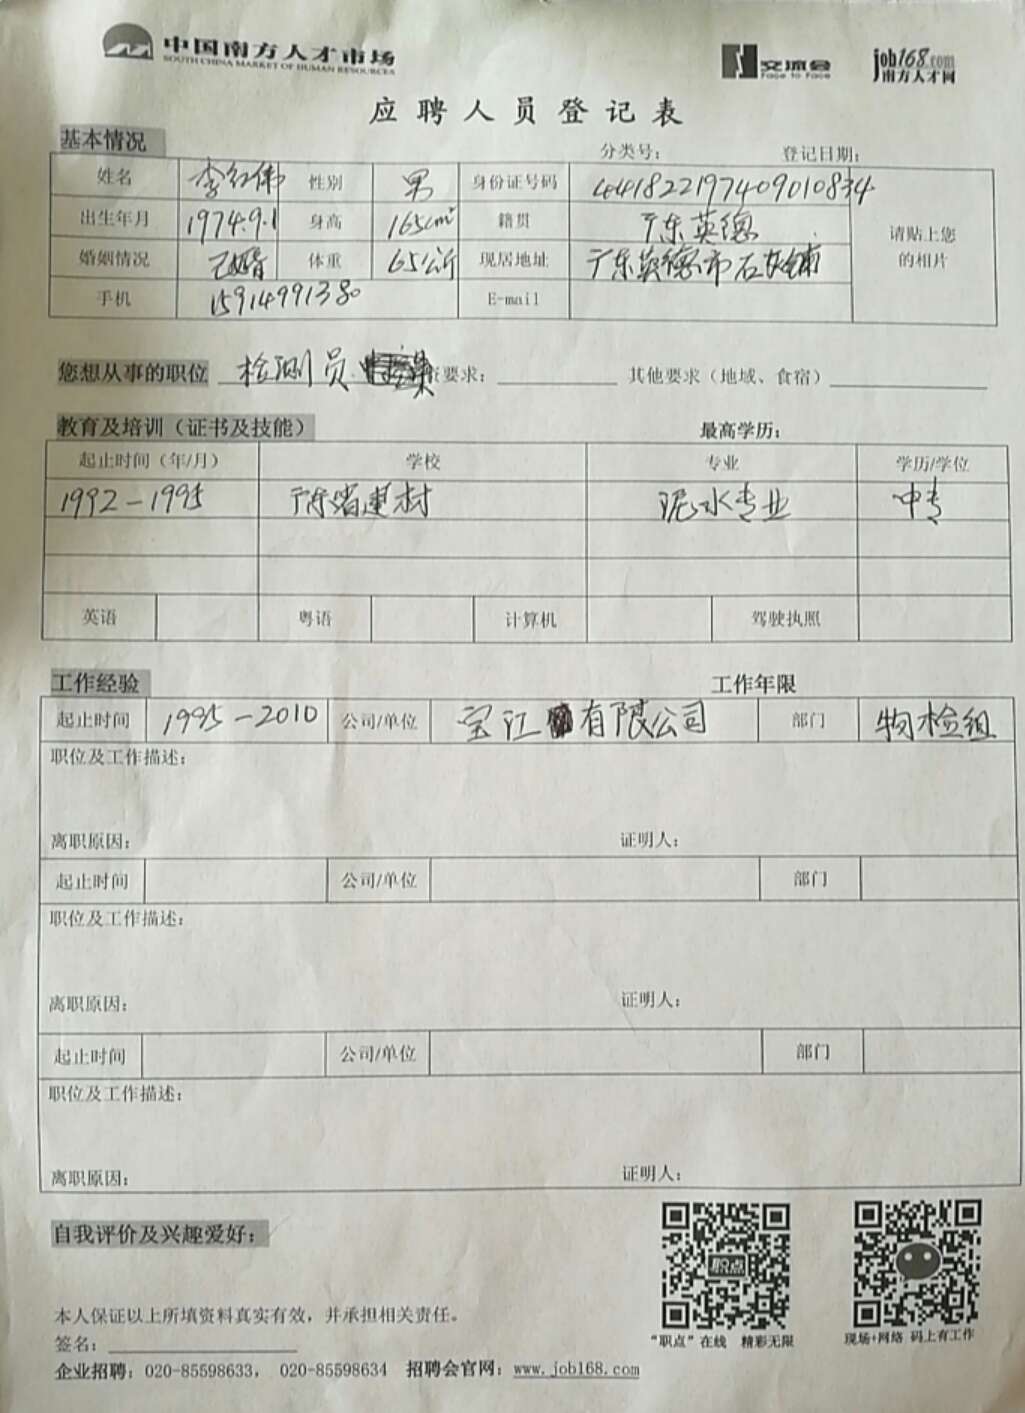 中国南方人才市场
SOUTH CHINA MARKET OF HUMAN RESOURCES
交流会
Face to Face
job168.com
南方人才网
应聘人员登记表
基本情况 分类号： 登记日期：
姓名 李红伟 性别 男 身份证号码 441822197409010834
出生年月 1974.9.1 身高 165cm² 籍贯 广东英德
请贴上您的相片
婚姻情况 已婚 体重 65公斤 现居地址 广东英德市石灰铺
手机 15914991380 E-mail
您想从事的职位 检测员 要求： 其他要求（地域、食宿）
教育及培训（证书及技能） 最高学历：
起止时间（年/月） 学校 专业 学历/学位
1992-1995 广东省建材 泥水专业 中专
英语 粤语 计算机 驾驶执照
工作经验 工作年限
起止时间 1995-2010 公司/单位 宝江有限公司 部门 物检组
职位及工作描述：
离职原因： 证明人：
起止时间 公司/单位 部门
职位及工作描述：
离职原因： 证明人：
起止时间 公司/单位 部门
职位及工作描述：
离职原因： 证明人：
自我评价及兴趣爱好：
职点
本人保证以上所填资料真实有效，并承担相关责任。
签名：
“职点”在线 精彩无限
现场+网络 码上有工作
企业招聘：020-85598633， 020-85598634 招聘会官网：www.job168.com